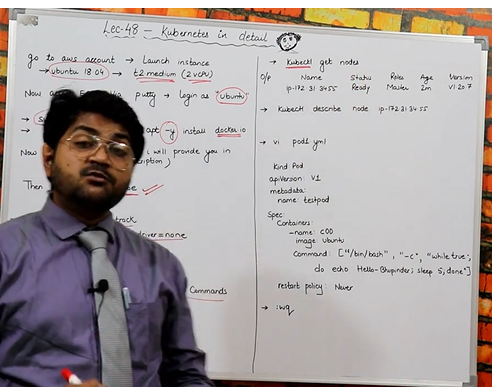 Lec-48 - Kubernetes in detail
go to aws account → Launch instance
→ ubuntu 18.04 → t2 medium (2 vCPU)
Now putty → login as "Ubuntu"
apt -y install docker.io
Now i will provide you in
Then
track
driver=none
Commands
→ Kubectl get nodes
O/p Name Status Roles Age Version
ip-172.31.34.55 Ready Master 2m V1.20.7
→ Kubectl describe node ip-172.31.34.55
→ vi pod1.yml
Kind: Pod
apiVersion: V1
metadata:
name: testpod
Spec:
Containers:
-name: c00
image: Ubuntu
Command: ["/bin/bash", "-c", "while true;
do echo Hello-Bhupinder; sleep 5; done"]
restart policy: Never
→ :wq